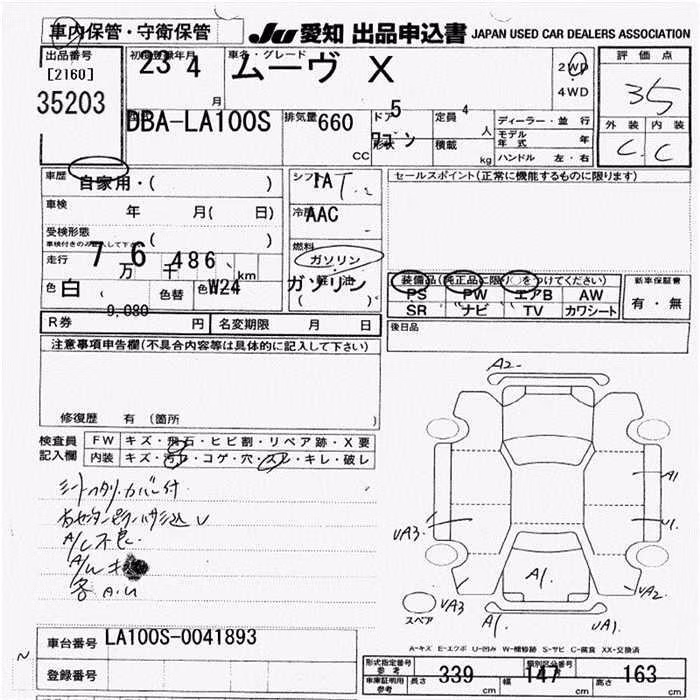 車内保管・守衛保管
JU愛知 出品申込書 JAPAN USED CAR DEALERS ASSOCIATION
出品番号 [2160] 35203
初度登録年月 23 4 月
車名・グレード ムーヴ X
2WD
4WD
評価点 35
外装 内装
C C
DBA-LA100S
排気量 660 CC
ドア 5
形状 ワゴン
定員 4 人
積載 kg
ディーラー・並行
モデル年式 年
ハンドル 左・右
車歴 自家用・( )
シフト IA
セールスポイント(正常に機能するものに限ります)
車検 年 月( 日)
冷房 AAC
受検形態 ( )
車検付きのみ記入して下さい
燃料 ガソリン 軽油 ガソリン ( )
走行 7万 6千 486 km
色 白 色替 色No W24
装備品(純正品に限り○をつけてください)
PS PW エアB AW
SR ナビ TV カワシート
新車保証書 有・無
R券 9,080 円 名変期限 月 日
後日品
注意事項申告欄(不具合内容等は具体的に記入して下さい)
修復歴 有 (箇所 )
検査員記入欄
FW キズ・飛石・ヒビ割・リペア跡・X要
内装 キズ・汚れ・コゲ・穴・スレ・キレ・破レ
A/C不良
各A.U
A2
A1
U1
UA3
A1
UA3
UA2
スペア
A1
UA1
A-キズ E-エクボ U-凹み W-補修跡 S-サビ C-腐食 XX-交換済
車台番号 LA100S-0041893
登録番号
形式指定番号 参考 類別区分番号
車庫証明用 参考 長さ 339 cm 幅 147 cm 高さ 163 cm